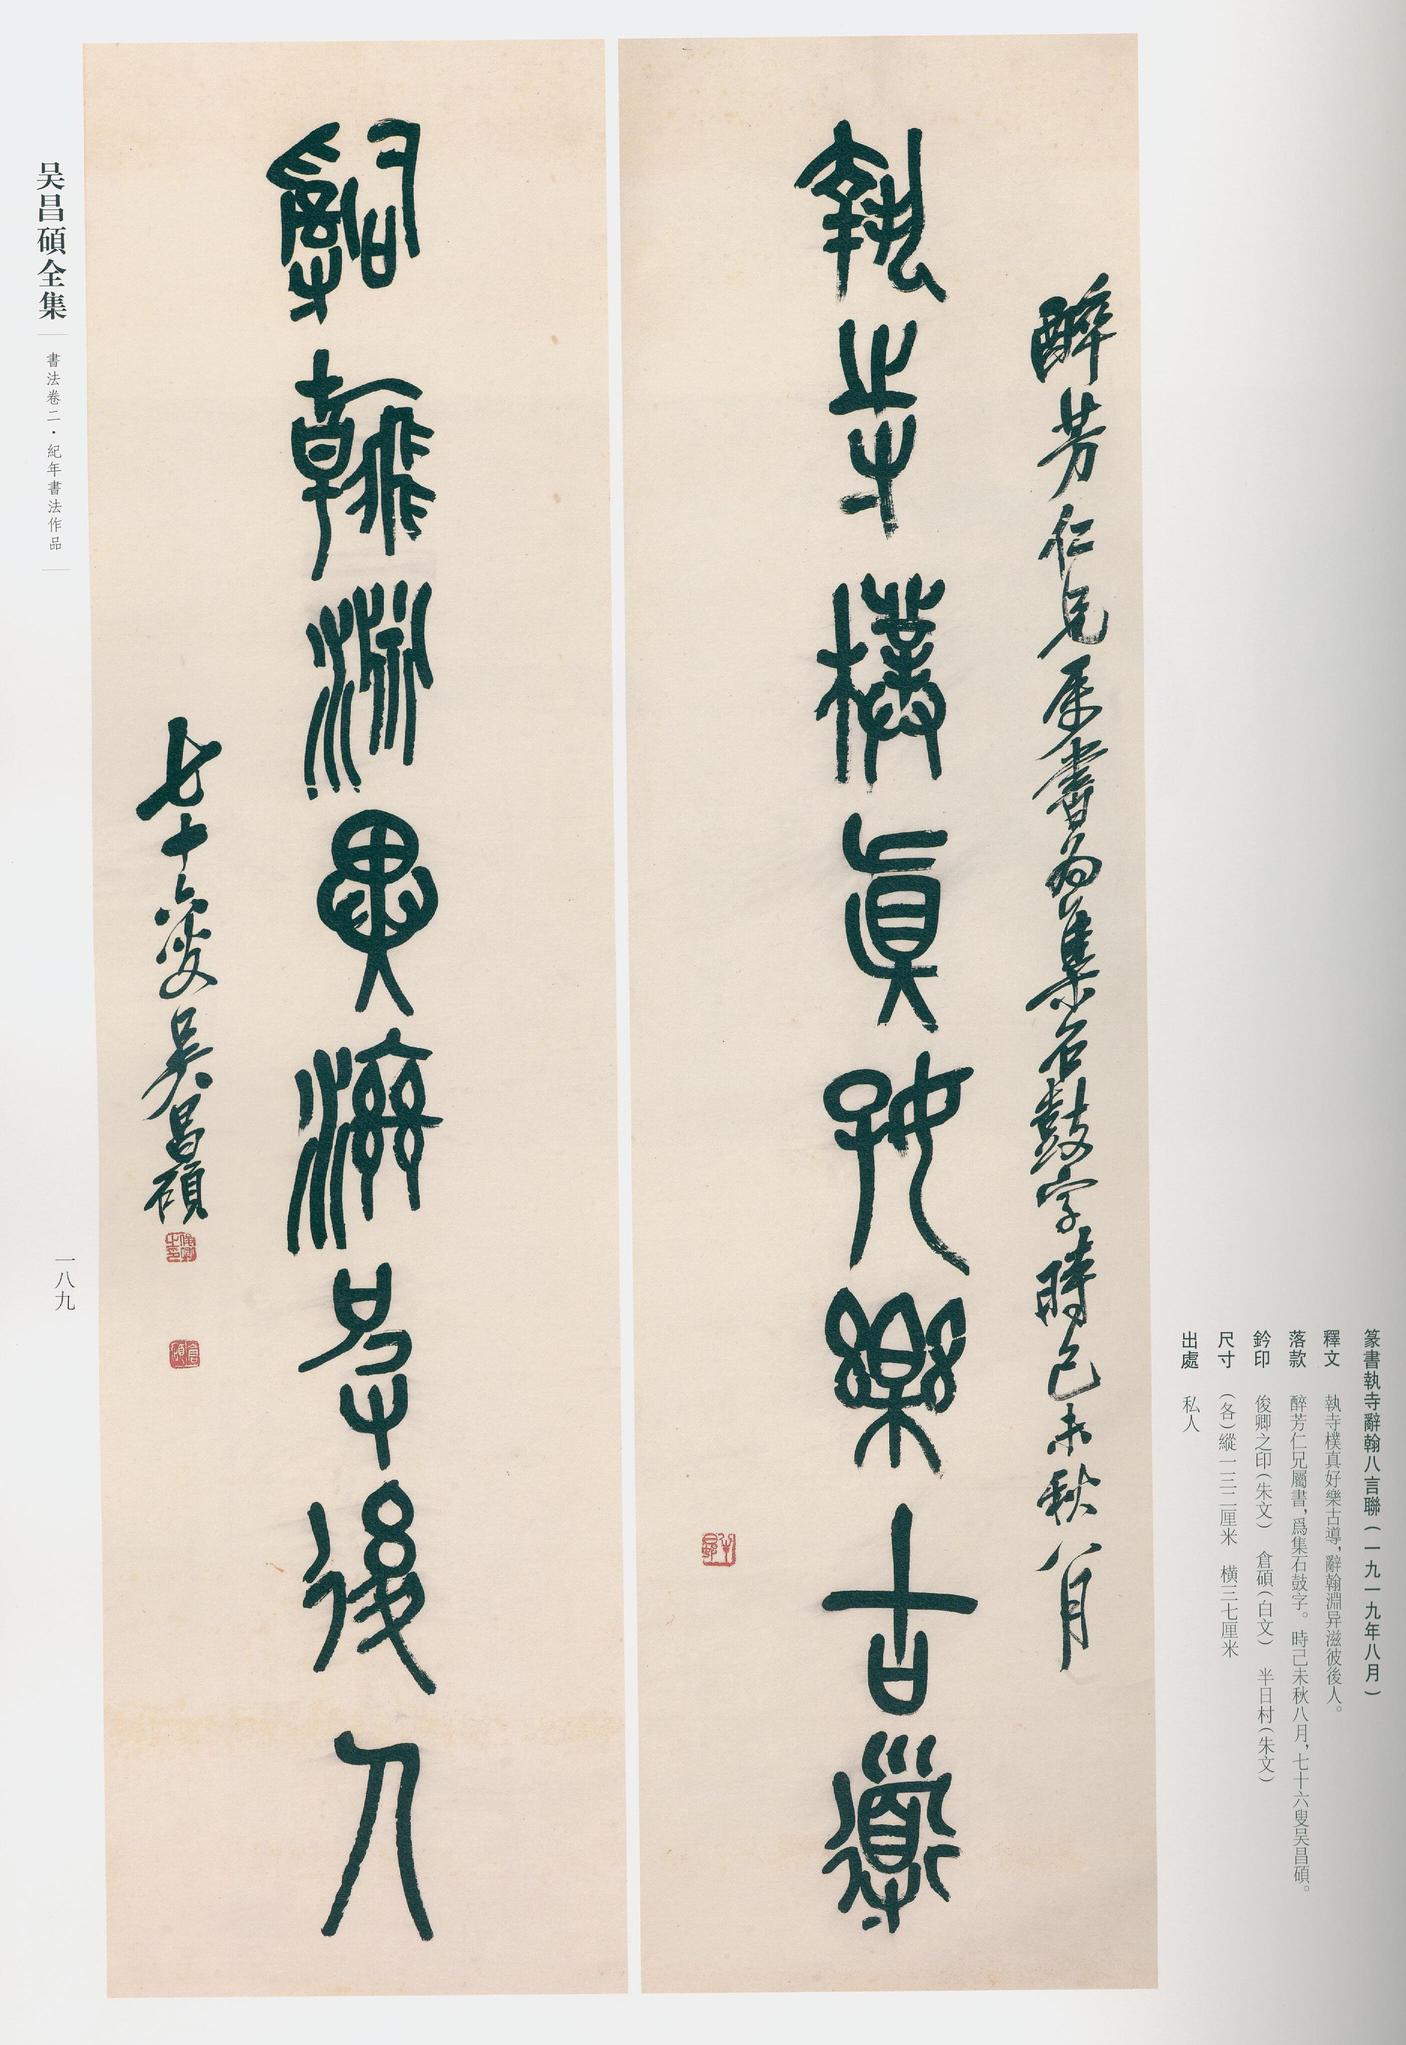 篆書執寺辭翰八言聯(一九一九年八月)
釋文 執寺樸真好樂古導,辭翰淵异滋彼後人。
落款 醉芳仁兄屬書,爲集石鼓字。時己未秋八月,七十六叟吴昌碩。
鈐印 俊卿之印(朱文) 倉碩(白文) 半日村(朱文)
尺寸 (各)縱一三二厘米 横三七厘米
出處 私人
醉芳仁兄属書為集石鼓字時己未秋八月
執寺樸真好樂古導
半日邨
辭翰淵异滋寺後人
七十六叟吴昌碩
俊卿之印
倉碩
吴昌碩全集
書法卷二·紀年書法作品
一八九